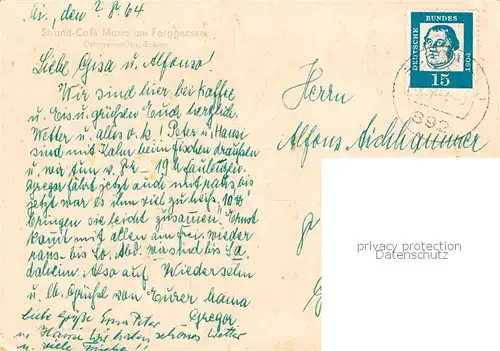 den 2.8.64
Strand-Café Maria am Forggensee
Liebe Gisa u. Alfonso!
Wir sind hier bei Kaffee
u. Eis u. grüßen Euch herzlich.
Wetter u. alles o.k.! Peter u. Hansi
sind mit Kahn beim fischen draußen
u. wir tun v. 
Gregor fährt jetzt auch mit raus, bis
jetzt war es ihm viel zu heiß.
bringen sie leicht zusammen. Ernst
kommt mit allen am wieder
raus - bis So. Abd. wir sind bis Sa.
daheim. Also auf Wiedersehn
u. lb. Grüße von Eurer Mama
liebe Grüße Erna Peter Gregor
u. Hansi wir haben schönes Wetter
u. viele Fische!!
DEUTSCHE BUNDES POST
15
892
Herrn
Alfons Aichhammer
privacy protection
Datenschutz